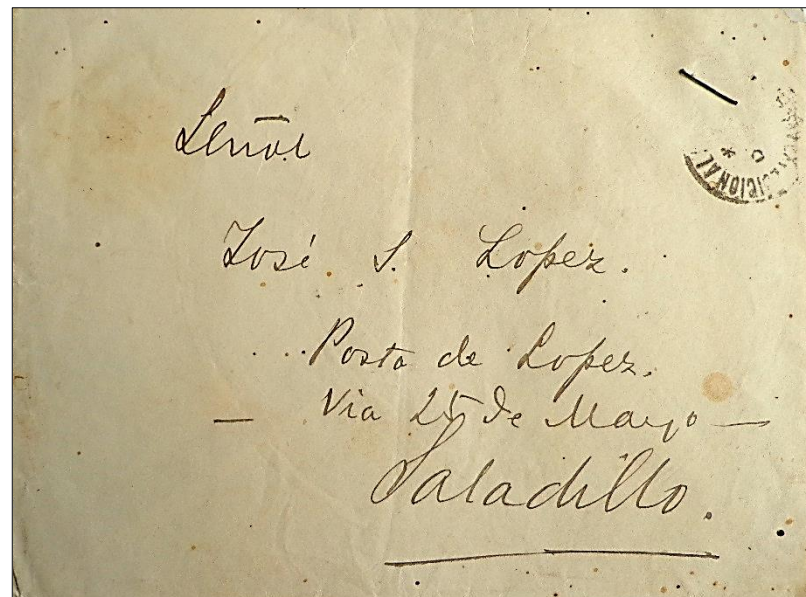 Señor
José S. Lopez.
Posta de Lopez.
— Via 25 de Mayo —
Saladillo.